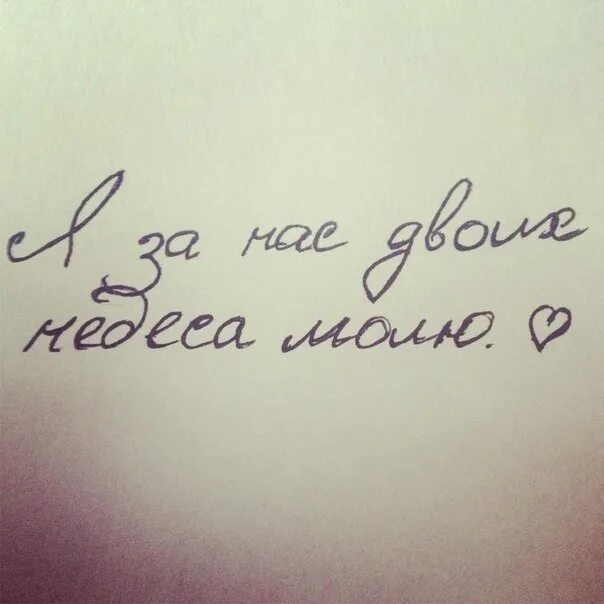 Я за нас двоих
небеса молю. ♡